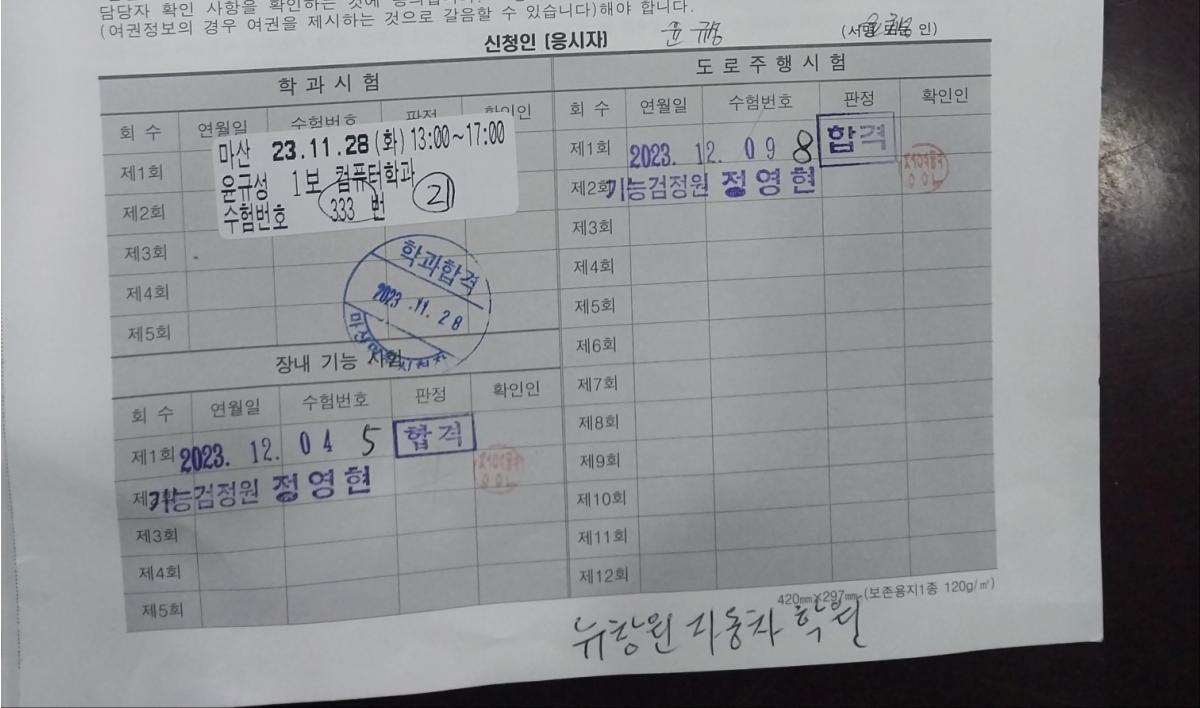 담당자 확인 사항을 확인하는 것에
(여권정보의 경우 여권을 제시하는 것으로 갈음할 수 있습니다)해야 합니다.
신청인 (응시자) 윤규성 (서명 또는 인)
학과시험
회 수 연월일 수험번호 판정 확인인
마산 23.11.28(화) 13:00~17:00
윤규성 1보 컴퓨터학과
수험번호 333 번 21
제1회
제2회
제3회
제4회
제5회
학과합격
2023.11.28
장내 기능 시험
회 수 연월일 수험번호 판정 확인인
제1회 2023. 12. 04 5 합격
기능검정원 정영현
제3회
제4회
제5회
도로주행시험
회 수 연월일 수험번호 판정 확인인
제1회 2023. 12. 09 8 합격
제2회 기능검정원 정영현
제3회
제4회
제5회
제6회
제7회
제8회
제9회
제10회
제11회
제12회
420㎜×297㎜ (보존용지1종 120g/㎡)
뉴창원 자동차 학원